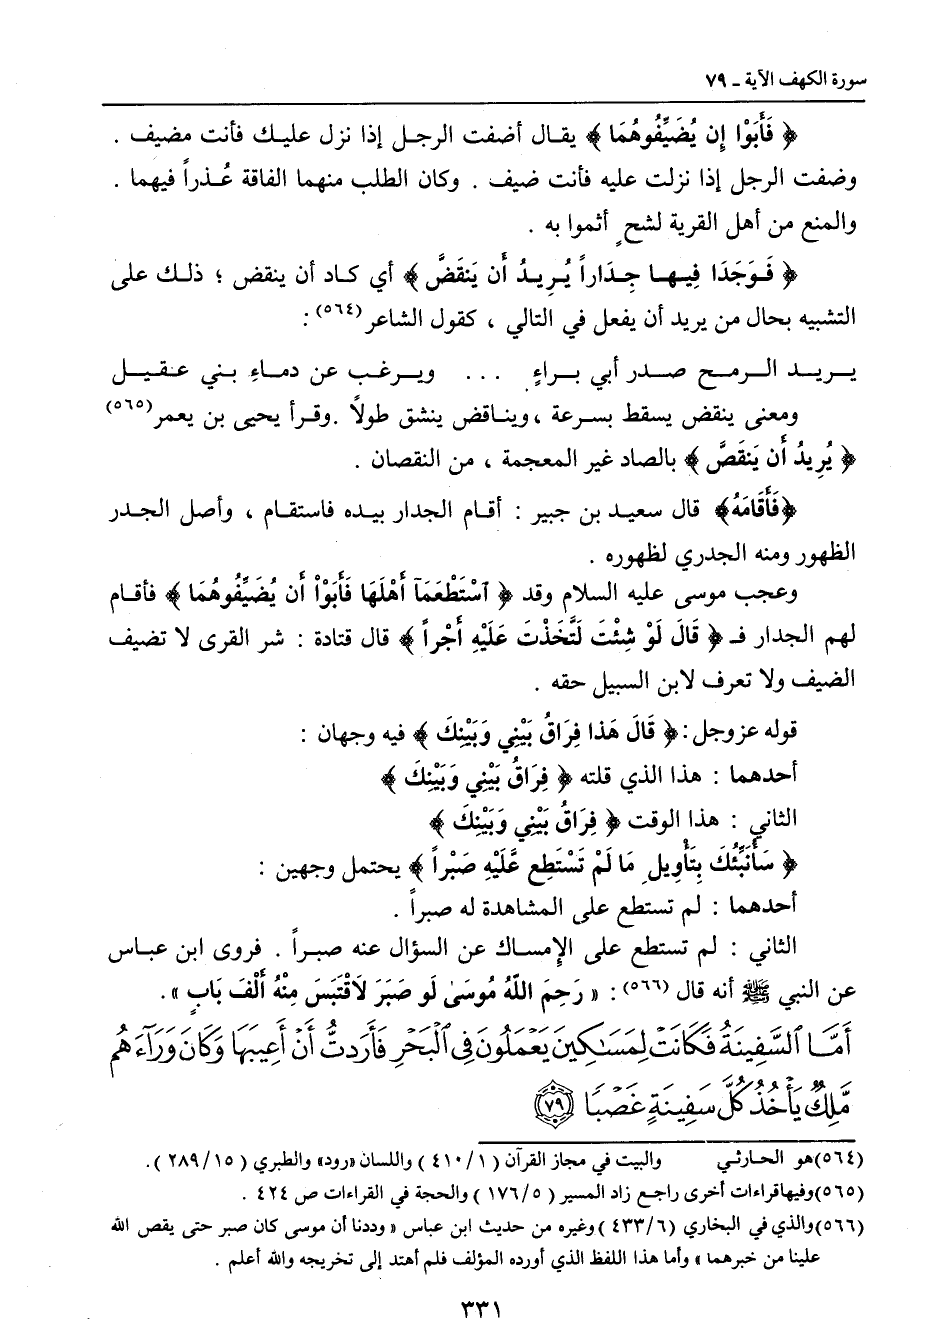 سورة الكهف الآية ـ ٧٩
﴿ فَأَبَوْا إِن يُضَيِّفُوهُمَا ﴾ يقال أضفت الرجل إذا نزل عليك فأنت مضيف .
وضفت الرجل إذا نزلت عليه فأنت ضيف . وكان الطلب منهما الفاقة عُذراً فيهما .
والمنع من أهل القرية لشحٍ أثموا به .
﴿ فَوَجَدَا فِيهَا جِدَاراً يُرِيدُ أَن يَنقَضَّ ﴾ أي كاد أن ينقض ؛ ذلك على
التشبيه بحال من يريد أن يفعل في التالي ، كقول الشاعر (٥٦٤) :
يريد الرمح صدر أبي براءٍ ... ويرغب عن دماءِ بني عقيل
ومعنى ينقض يسقط بسرعة ، ويناقض ينشق طولاً .وقرأ يحيى بن يعمر(٥٦٥)
﴿ يُرِيدُ أَن يَنقَصَّ ﴾ بالصاد غير المعجمة ، من النقصان .
﴿فَأَقَامَهُ﴾ قال سعيد بن جبير : أقام الجدار بيده فاستقام ، وأصل الجدر
الظهور ومنه الجدري لظهوره .
وعجب موسى عليه السلام وقد ﴿ ٱسْتَطْعَمَآ أَهْلَهَا فَأَبَوْاْ أَن يُضَيِّفُوهُمَا ﴾ فأقام
لهم الجدار فـ ﴿ قَالَ لَوْ شِئْتَ لَتَّخَذْتَ عَلَيْهِ أَجْراً ﴾ قال قتادة : شر القرى لا تضيف
الضيف ولا تعرف لابن السبيل حقه .
قوله عزوجل:﴿ قَالَ هَذا فِرَاقُ بَيْنِي وَبَيْنِكَ ﴾ فيه وجهان :
أحدهما : هذا الذي قلته ﴿ فِرَاقُ بَيْنِي وَبَيْنِكَ ﴾
الثاني : هذا الوقت ﴿ فِرَاقُ بَيْنِي وَبَيْنِكَ ﴾
﴿ سَأُنَبِّئُكَ بِتَأْوِيلِ مَا لَمْ تَسْتَطِع عَّلَيْهِ صَبْراً ﴾ يحتمل وجهين :
أحدهما : لم تستطع على المشاهدة له صبراً .
الثاني : لم تستطع على الإمساك عن السؤال عنه صبراً . فروى ابن عباس
عن النبي ﷺ أنه قال (٥٦٦) : « رَحِمَ اللَّهُ مُوسَىٰ لَو صَبَرَ لَاقْتَبَسَ مِنْهُ أَلْفَ بَابٍ ».
أَمَّا ٱلسَّفِينَةُ فَكَانَتْ لِمَسَٰكِينَ يَعْمَلُونَ فِي ٱلْبَحْرِ فَأَرَدتُّ أَنْ أَعِيبَهَا وَكَانَ وَرَآءَهُم
مَّلِكٌ يَأْخُذُ كُلَّ سَفِينَةٍ غَصْبًا ٧٩
(٥٦٤)هو الحارثي والبيت في مجاز القرآن ( ١/ ٤١٠ ) واللسان «رود» والطبري ( ١٥/ ٢٨٩ ).
(٥٦٥)وفيهاقراءات أخرى راجع زاد المسير ( ٥/ ١٧٦ ) والحجة في القراءات ص ٤٢٤ .
(٥٦٦)والذي في البخاري ( ٦/ ٤٣٣ )وغيره من حديث ابن عباس « وددنا أن موسى كان صبر حتى يقص الله
علينا من خبرهما » وأما هذا اللفظ الذي أورده المؤلف فلم أهتد إلى تخريجه والله أعلم .
٣٣١